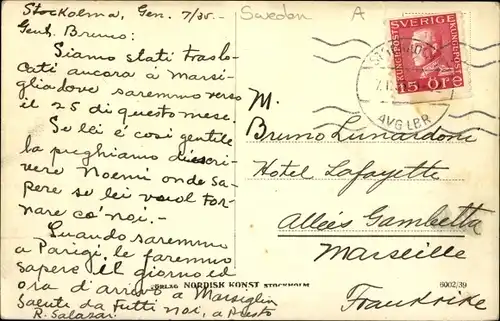 Stockolma, Gen. 7/35.-
Gent. Bruno:
Siamo stati traslo-
cati ancora á Marsi-
glia dove saremmo verso
il 25 di questo mese.
Se lei é così gentile
la preghiamo di scri-
vere Noemi onde sa-
pere se lei vuol tor-
nare co' noi.-
Quando saremmo
a Parigi, le faremmo
sapere il giorno ed
ora d'arrivo a Marsiglia
Saluti da tutti noi, a presto
R. Salazar.
Sweden
A
SVERIGE
KUNGL.POST
15 ÖRE
AVG LBR
M.
Bruno Lunardoni
Hotel Lafayette
Alleés Gambetta
Marseille
Frankrike
NORDISK KONST STOCKHOLM
6002/39